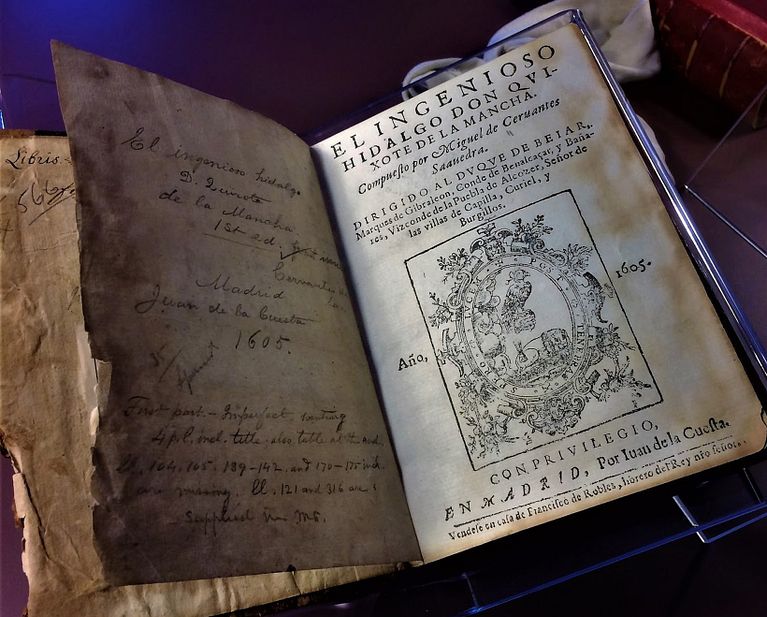 Libris
El ingenioso hidalgo
D. Quixote
de la Mancha
1st ed.
Cervantes
Madrid
Juan de la Cuesta
1605.
First part. - Imperfect wanting
4 p.l. incl. title also title at the end
ll. 104, 105. 139-142. and 170-175 inch
are missing. ll. 121 and 316 are
supplied in MS.
EL INGENIOSO
HIDALGO DON QVI-
XOTE DE LA MANCHA.
Compuesto por Miguel de Ceruantes
Saauedra.
DIRIGIDO AL DVQVE DE BEIAR,
Marques de Gibraleon, Conde de Benalcaçar, y Baña-
res, Vizconde de la Puebla de Alcozer, Señor de
las villas de Capilla, Curiel, y
Burgillos.
Año, 1605.
POST TENEBRAS
CON PRIVILEGIO,
EN MADRID, Por Iuan de la Cuesta.
Vendese en casa de Francisco de Robles, librero del Rey nro señor.